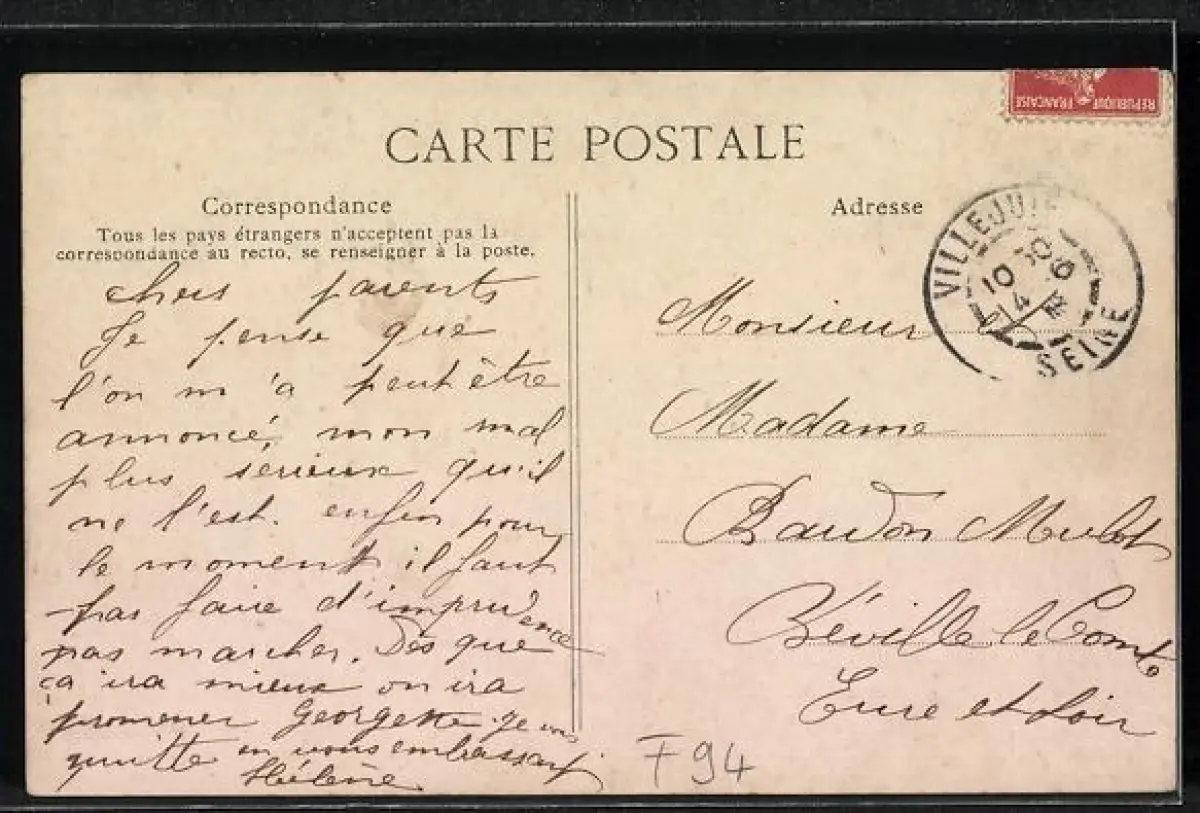 CARTE POSTALE
Correspondance
Tous les pays étrangers n'acceptent pas la
correspondance au recto, se renseigner à la poste.
chers parents
Je pense que
l'on m'a peut être
annoncé, mon mal
plus sérieux qu'il
ne l'est. enfin pour
le moment il faut
pas faire d'imprudence
pas marcher. Dès que
ça ira mieux on ira
promener Georgette. Je vous
quitte en vous embrassant
Hélène
Adresse
Monsieur
Madame
Baudon Mulot
Béville le Comte
Eure et Loir
REPUBLIQUE FRANCAISE
VILLEJUIF
10
14
SEINE
F94